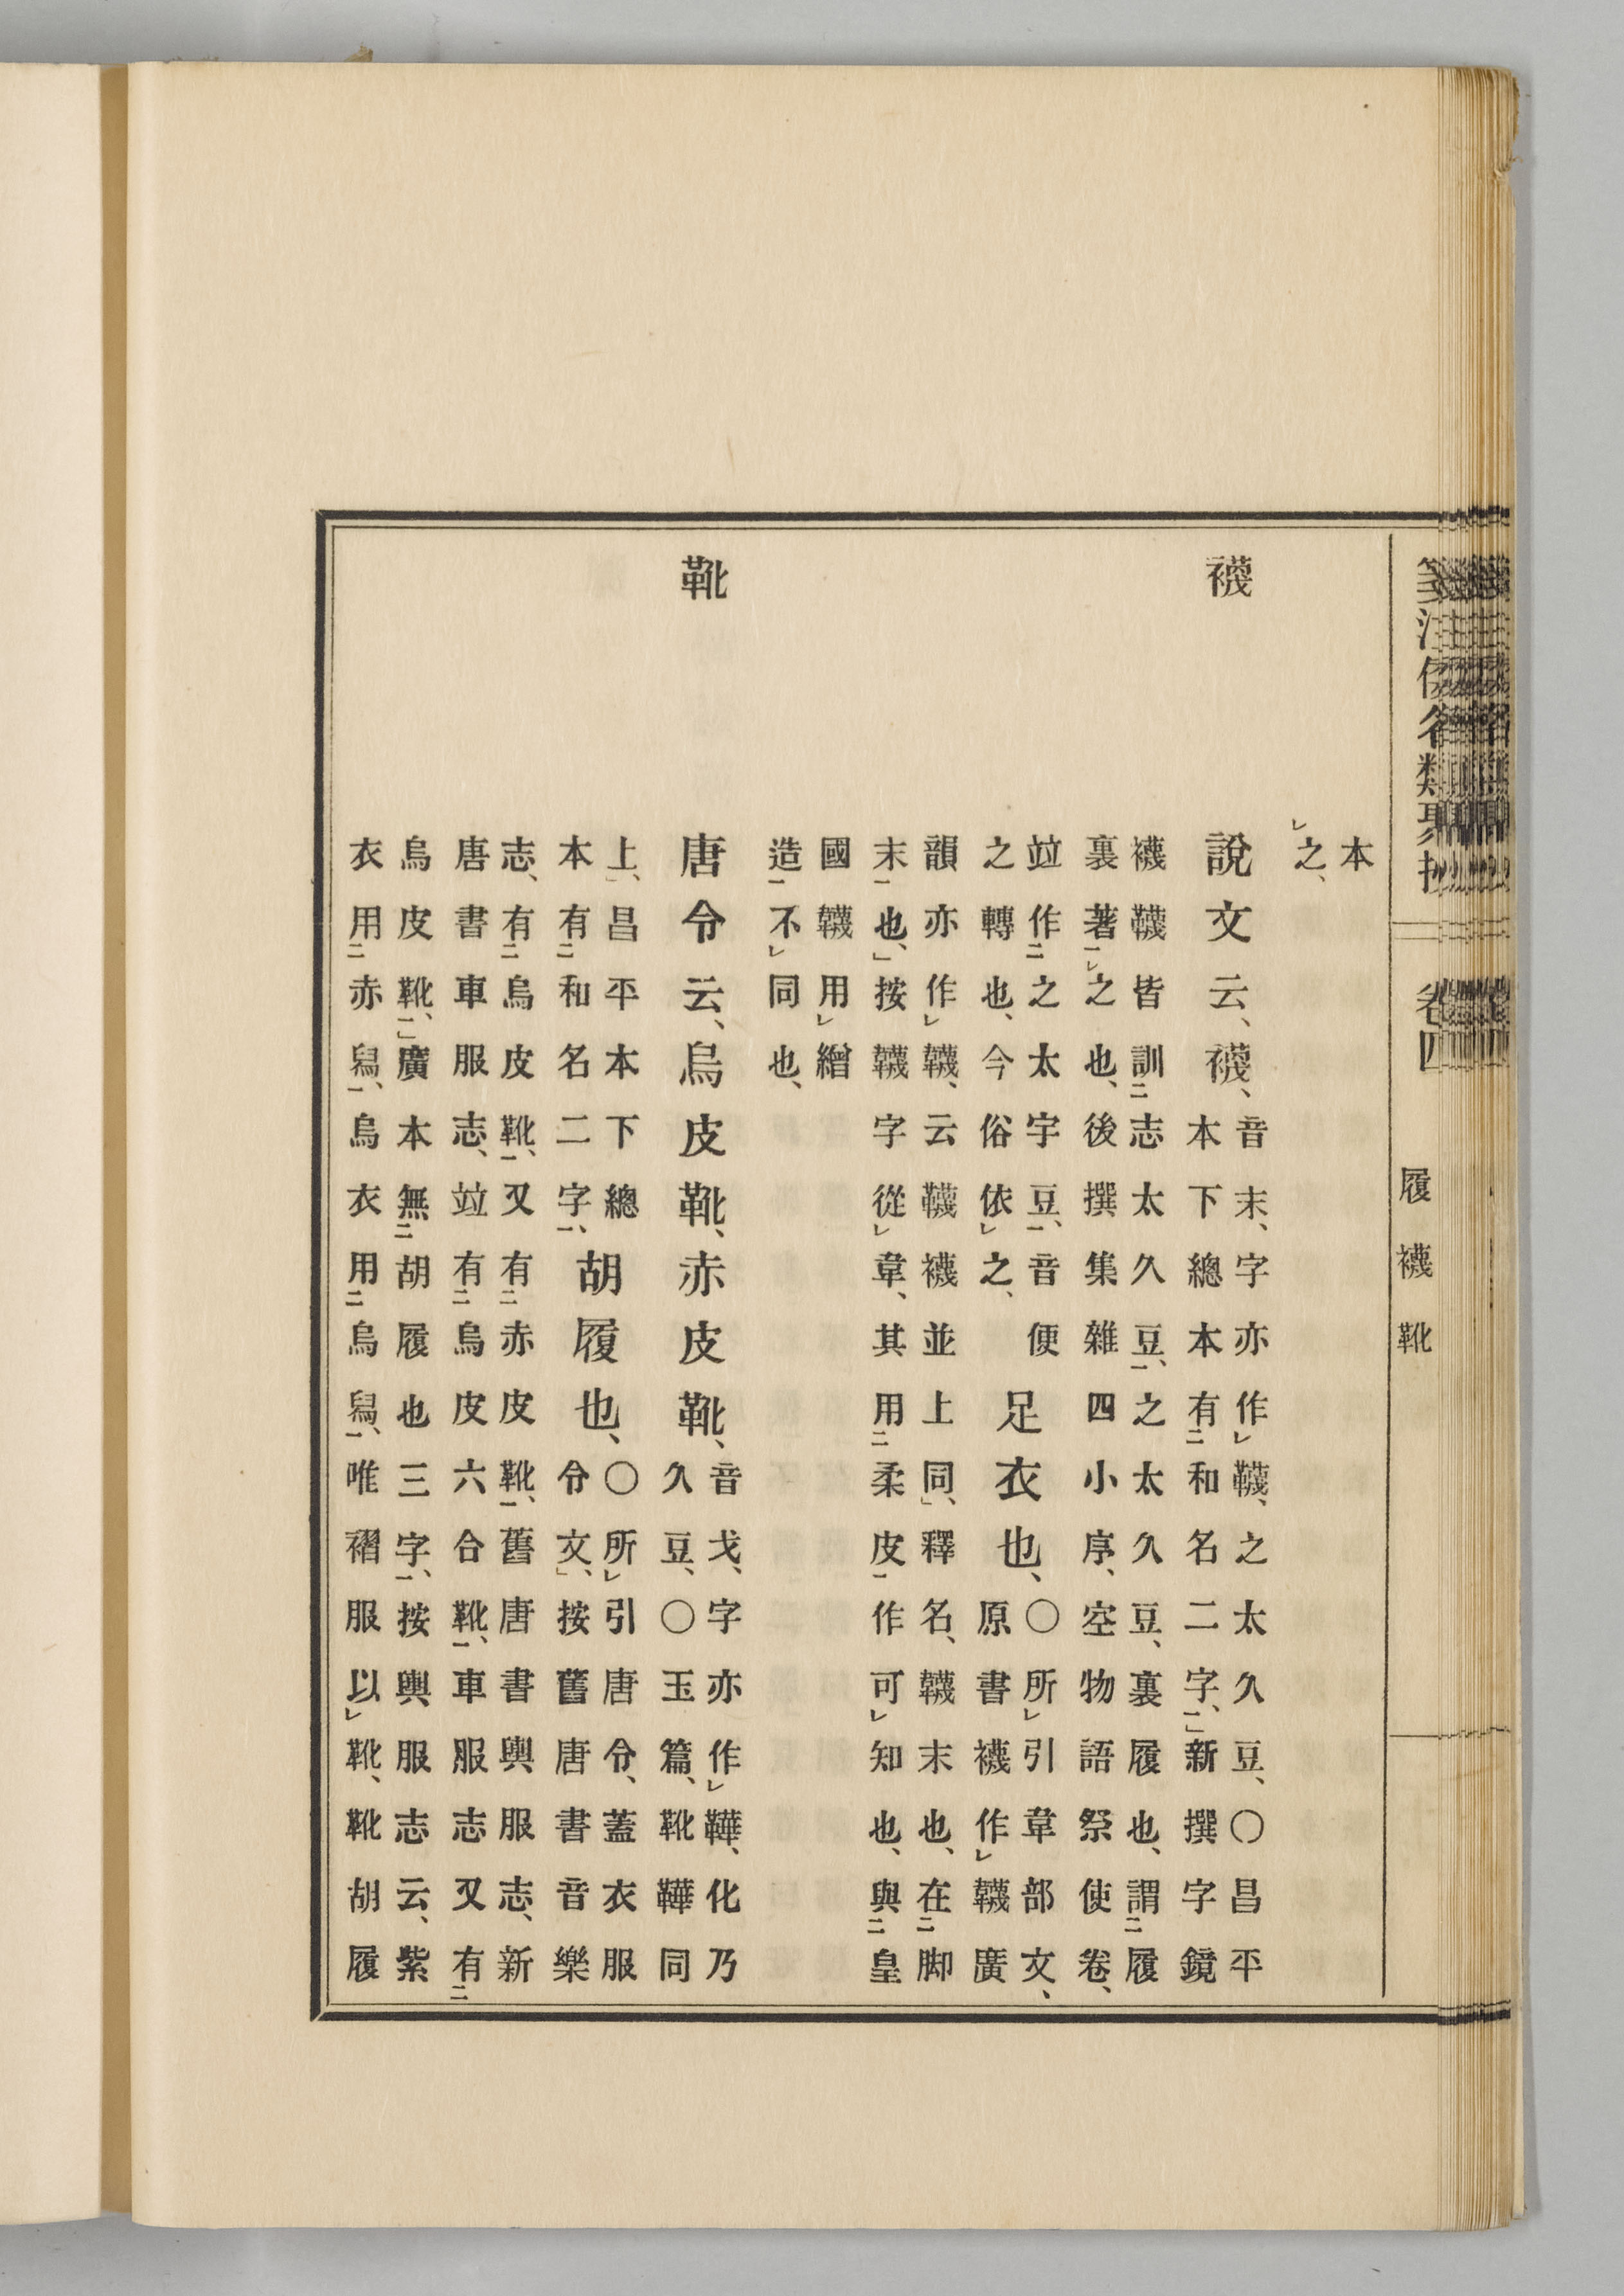 箋注倭名類聚抄 卷四 履 襪 靴
本
之、
襪 說文云、襪、
音末、字亦作韈、之太久豆、〇昌平
本下總本有和名二字、新撰字鏡
襪韈皆訓志太久豆、之太久豆、裏履也、謂履
裏著之也、後撰集雜四小序、空物語祭使卷、
竝作之太宇豆、音便
之轉也、今俗依之、
足衣也、
〇所引韋部文、
原書襪作韈、廣
韻亦作韈、云韈襪並上同、釋名、韈末也、在脚
末也、按韈字從韋、其用柔皮作可知也、與皇
國韈用繒
造不同也、
靴 唐令云、烏皮靴、赤皮靴、
音戈、字亦作鞾、化乃
久豆、〇玉篇、靴鞾同
上、昌平本下總
本有和名二字、
胡履也、
〇所引唐令、蓋衣服
令文、按舊唐書音樂
志、有烏皮靴、又有赤皮靴、舊唐書輿服志、新
唐書車服志、竝有烏皮六合靴、車服志又有
烏皮靴、廣本無胡履也三字、按輿服志云、紫
衣用赤舃、烏衣用烏舃、唯褶服以靴、靴胡履